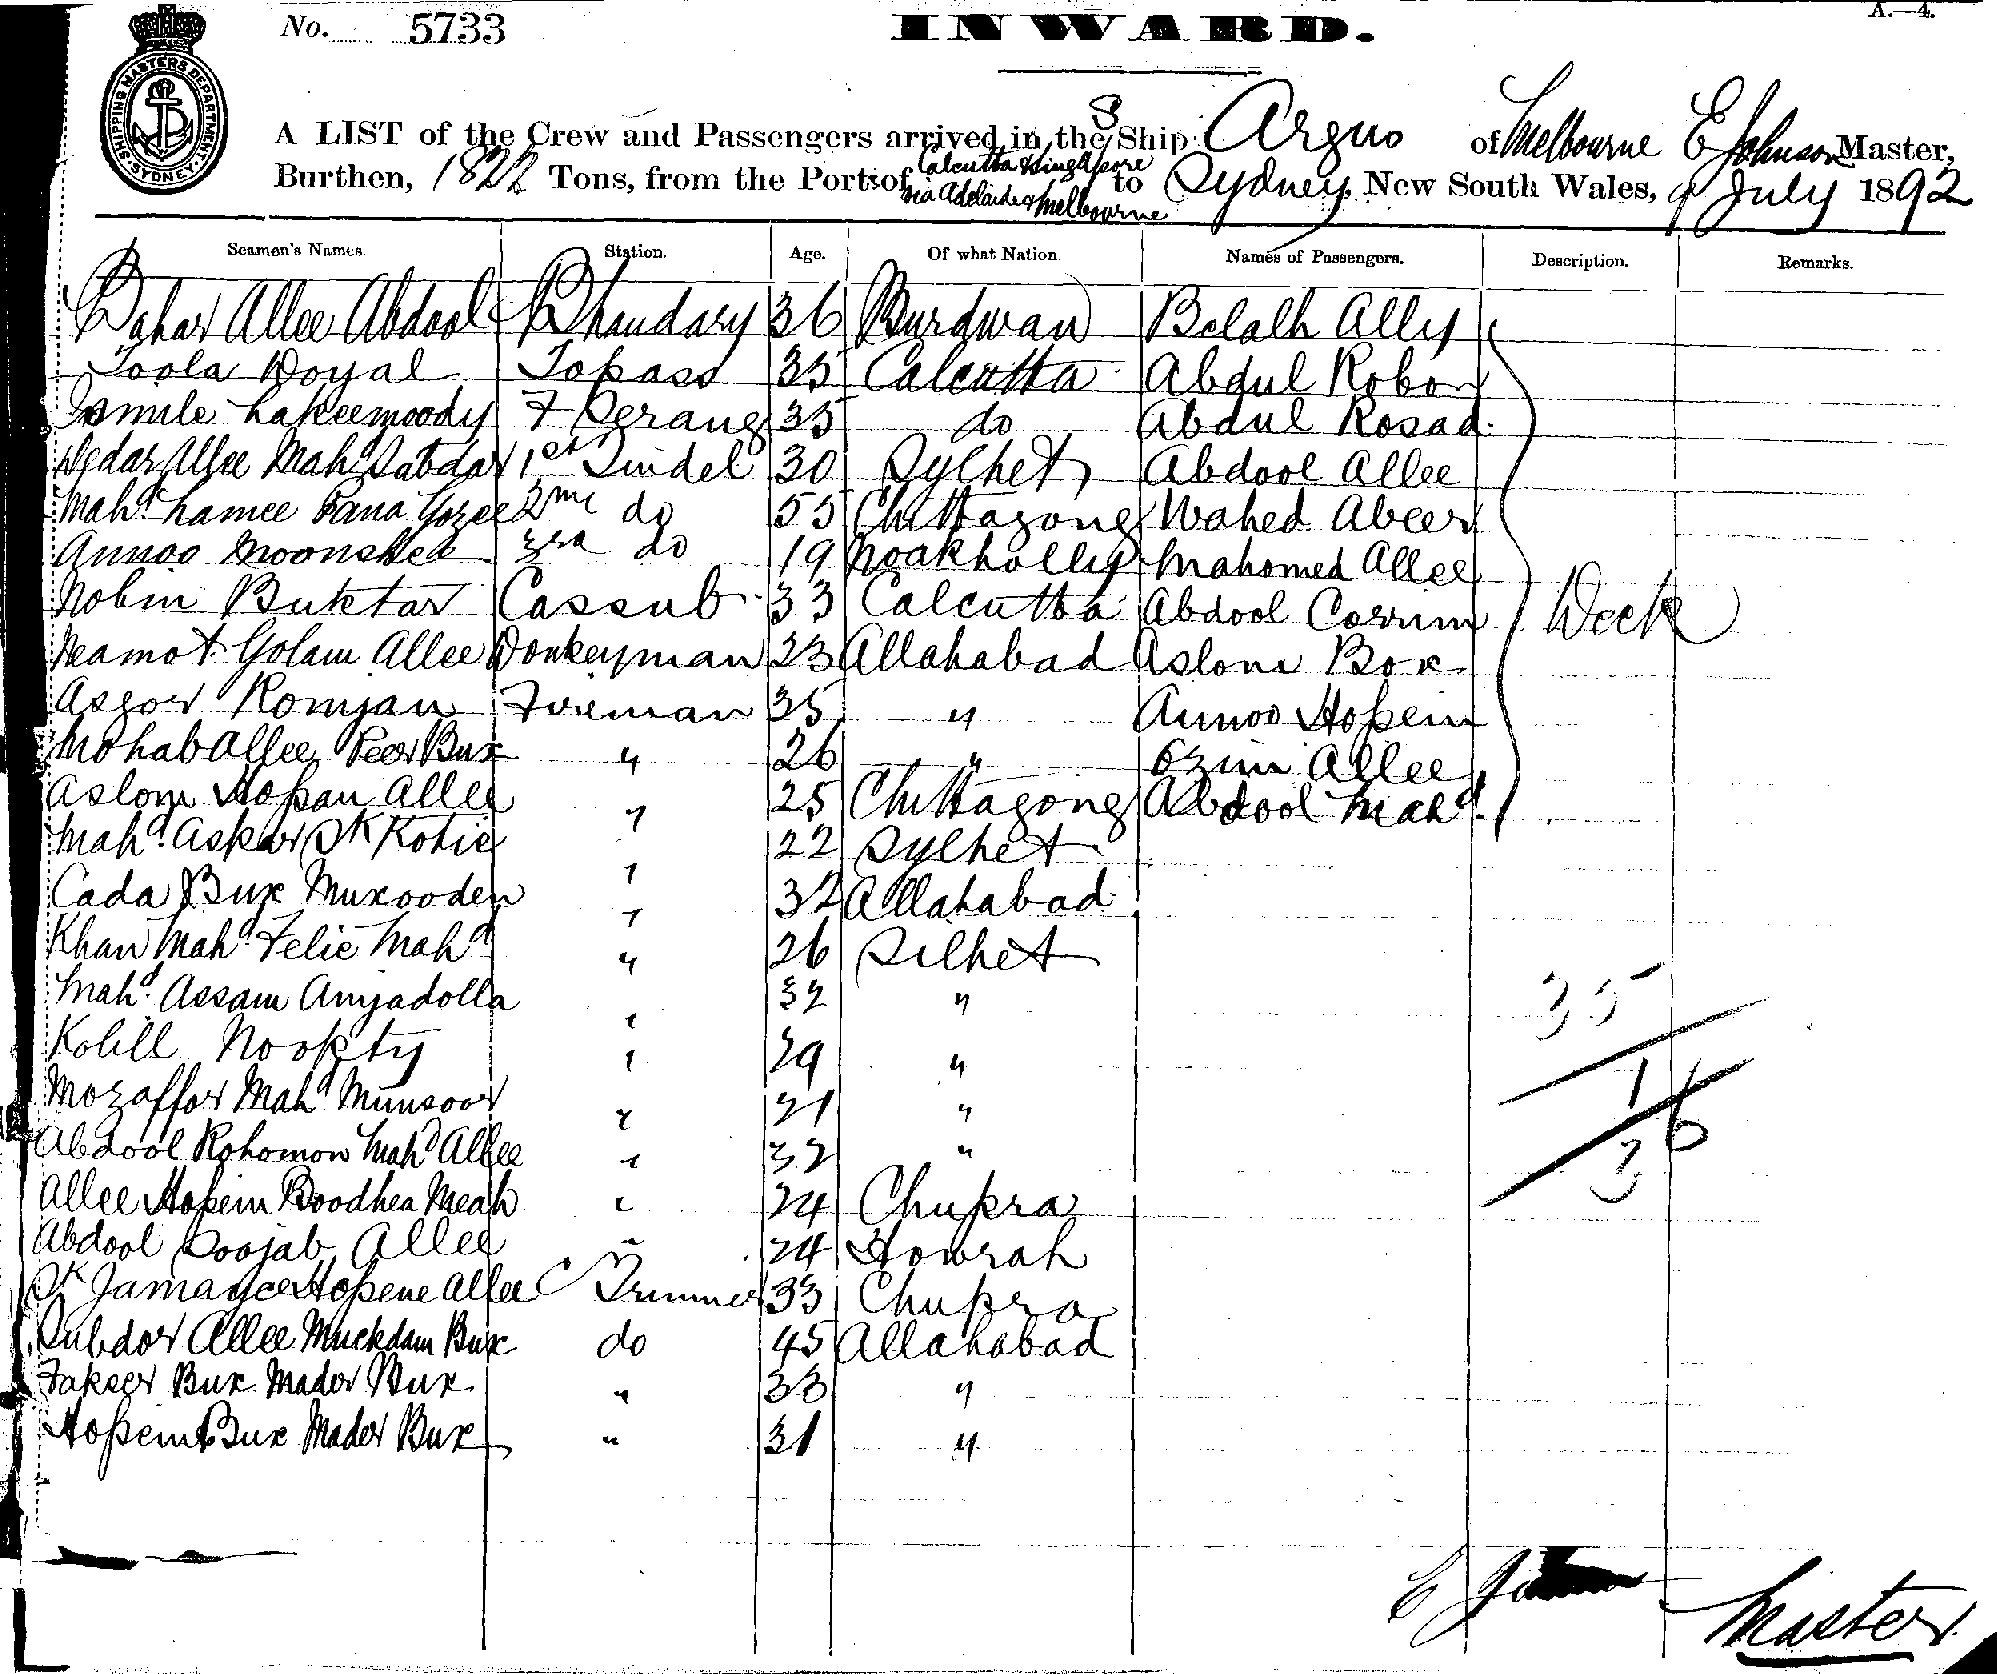 No. 5733
INWARD.
A.—4.
SHIPPING MASTERS DEPARTMENT SYDNEY
A LIST of the Crew and Passengers arrived in the S Ship Argus of Melbourne E Johnson Master,
Burthen, 1822 Tons, from the Ports of Calcutta & Singapore via Adelaide & Melbourne to Sydney, New South Wales, 9 July 1892
Seamen's Names. Station. Age. Of what Nation. Names of Passengers. Description. Remarks.
Bahar Allee Abdool Bhandary 36 Burdwan Belalh Ally
Toola Doyal Topass 35 Calcutta Abdul Robon
Ismile Lakeemoody F Serang 35 do Abdul Rosad
Dedar Allee Mahd Sabdar 1st Tindel 30 Sylhet Abdool Allee
Mahd Lamee Rana Gozee 2nd do 55 Chittagong Wahed Abeer
Annoo Moonshee 3rd do 19 Noakholly Mahomed Allee
Nobin Buktar Cassub 33 Calcutta Abdool Corrim Deck
Neamot Golam Allee Donkeyman 23 Allahabad Aslom Box
Asgor Romjan Fireman 35 " Annoo Hossein
Mohab Allee Peer Bux " 26 " Ozim Allee
Aslom Hossan Allee " 25 Chittagong Abdool Mahd.
Mahd. Askar Sk Kotie " 22 Sylhet
Cada Bux Muxooden " 32 Allahabad
Khan Mahd. Felie Mahd " 26 Silhet
Mahd. Assam Amjadolla " 32 "
Kolill Nookty " 29 "
Mozaffor Mahd Munsoor " 21 "
Abdool Rohomon Mahd Allee " 32 "
Allee Hossein Boodhea Meah " 24 Chupra
Abdool Soojab Allee " 24 Howrah
Sk Jamayce Hossene Allee C Trimmer 33 Chupra
Subdor Allee Muckdam Bux do 45 Allahabad
Fakeer Bux Mador Bux " 33 "
Hossein Bux Mador Bux " 31 "
35
1
36
E Johnson
Master